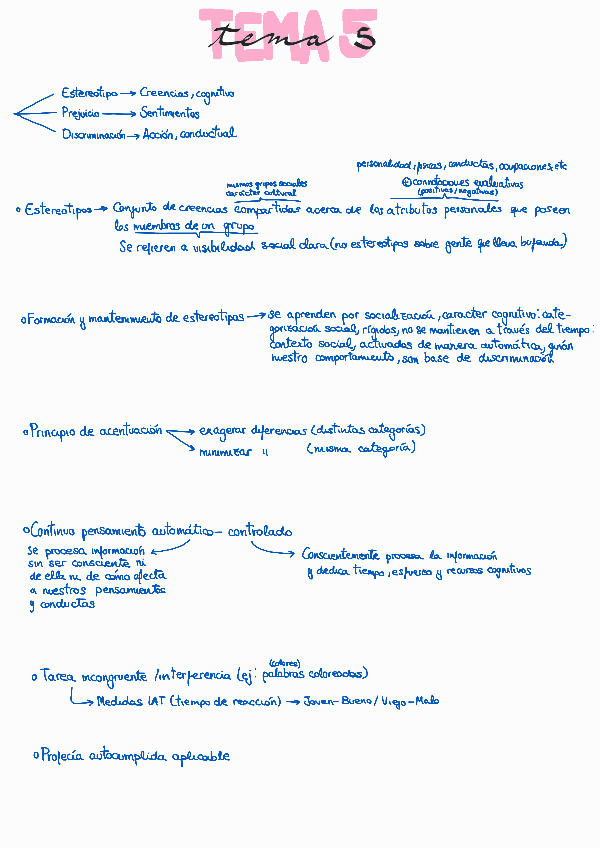 TEMA 5
tema 5
Estereotipo → Creencias, cognitivo
Prejuicio → Sentimientos
Discriminación → Acción, conductual
personalidad, físicas, conductas, ocupaciones, etc
mismos grupos sociales
carácter cultural
⊕ connotaciones evaluativas
(positivas/negativas)
o Estereotipos → Conjunto de creencias compartidas acerca de los atributos personales que poseen
los miembros de un grupo
Se refieren a visibilidad social clara (no estereotipos sobre gente que lleva bufanda)
o Formación y mantenimiento de estereotipos → se aprenden por socialización, caracter cognitivo: cate-
gorización social, rígidos, no se mantienen a través del tiempo:
contexto social, activados de manera automática, guían
nuestro comportamiento, son base de discriminación
o Principio de acentuación → exagerar diferencias (distintas categorías)
→ minimizar " (misma categoría)
o Continuo pensamiento automático - controlado
Se procesa información
sin ser consciente ni
de ella ni de cómo afecta
a nuestros pensamientos
y conductas
Conscientemente procesa la información
y dedica tiempo, esfuerzo y recursos cognitivos
(colores)
o Tarea incongruente / interferencia (ej: palabras coloreadas)
→ Medidas IAT (tiempo de reacción) → Joven-Bueno / Viejo-Malo
o Profecía autocumplida aplicable